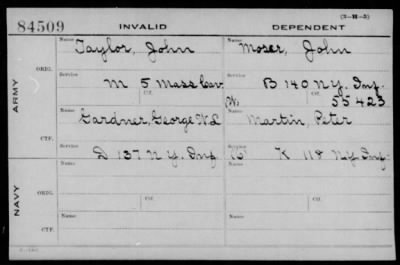 (3-H-3)
84509 INVALID DEPENDENT
Name Taylor, John Name Moser, John
ARMY
ORIG.
Service M 5 Mass Cav. Ct. Service B 140 N.Y. Inf. Ct.
(W) 55423
Name Gardner, George W L Name Martin, Peter
CTF.
Service D 137 N.Y. Inf. K 118 N.Y. Inf.
NAVY
ORIG. Name Name
Service Ct. Service Ct.
CTF. Name Name